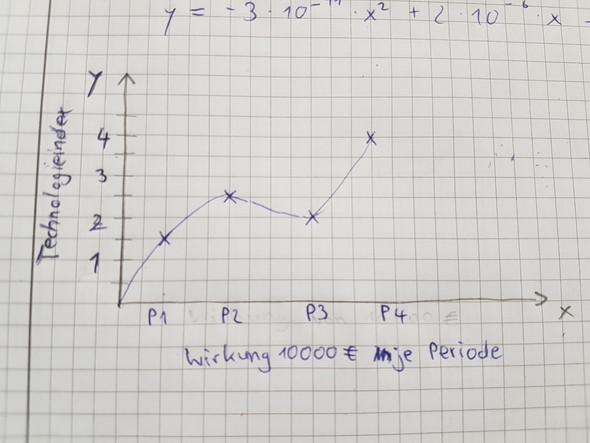 y = -3 · 10 · x² + 2 · 10⁻⁶ · x -
y
Technologieindex
4
3
2
1
P1 P2 P3 P4
x
Wirkung 10000 € je Periode